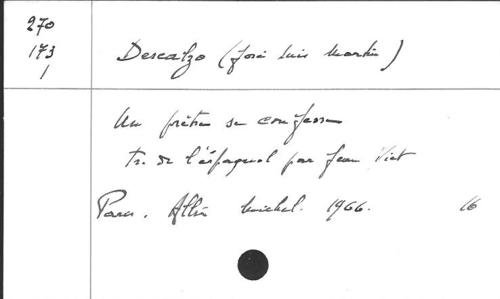 270
173
1
Descalzo (José Luis Martin)
Un prêtre se confesse
tr. de l'espagnol par Jean Viet
Paris. Albin Michel. 1966. 16